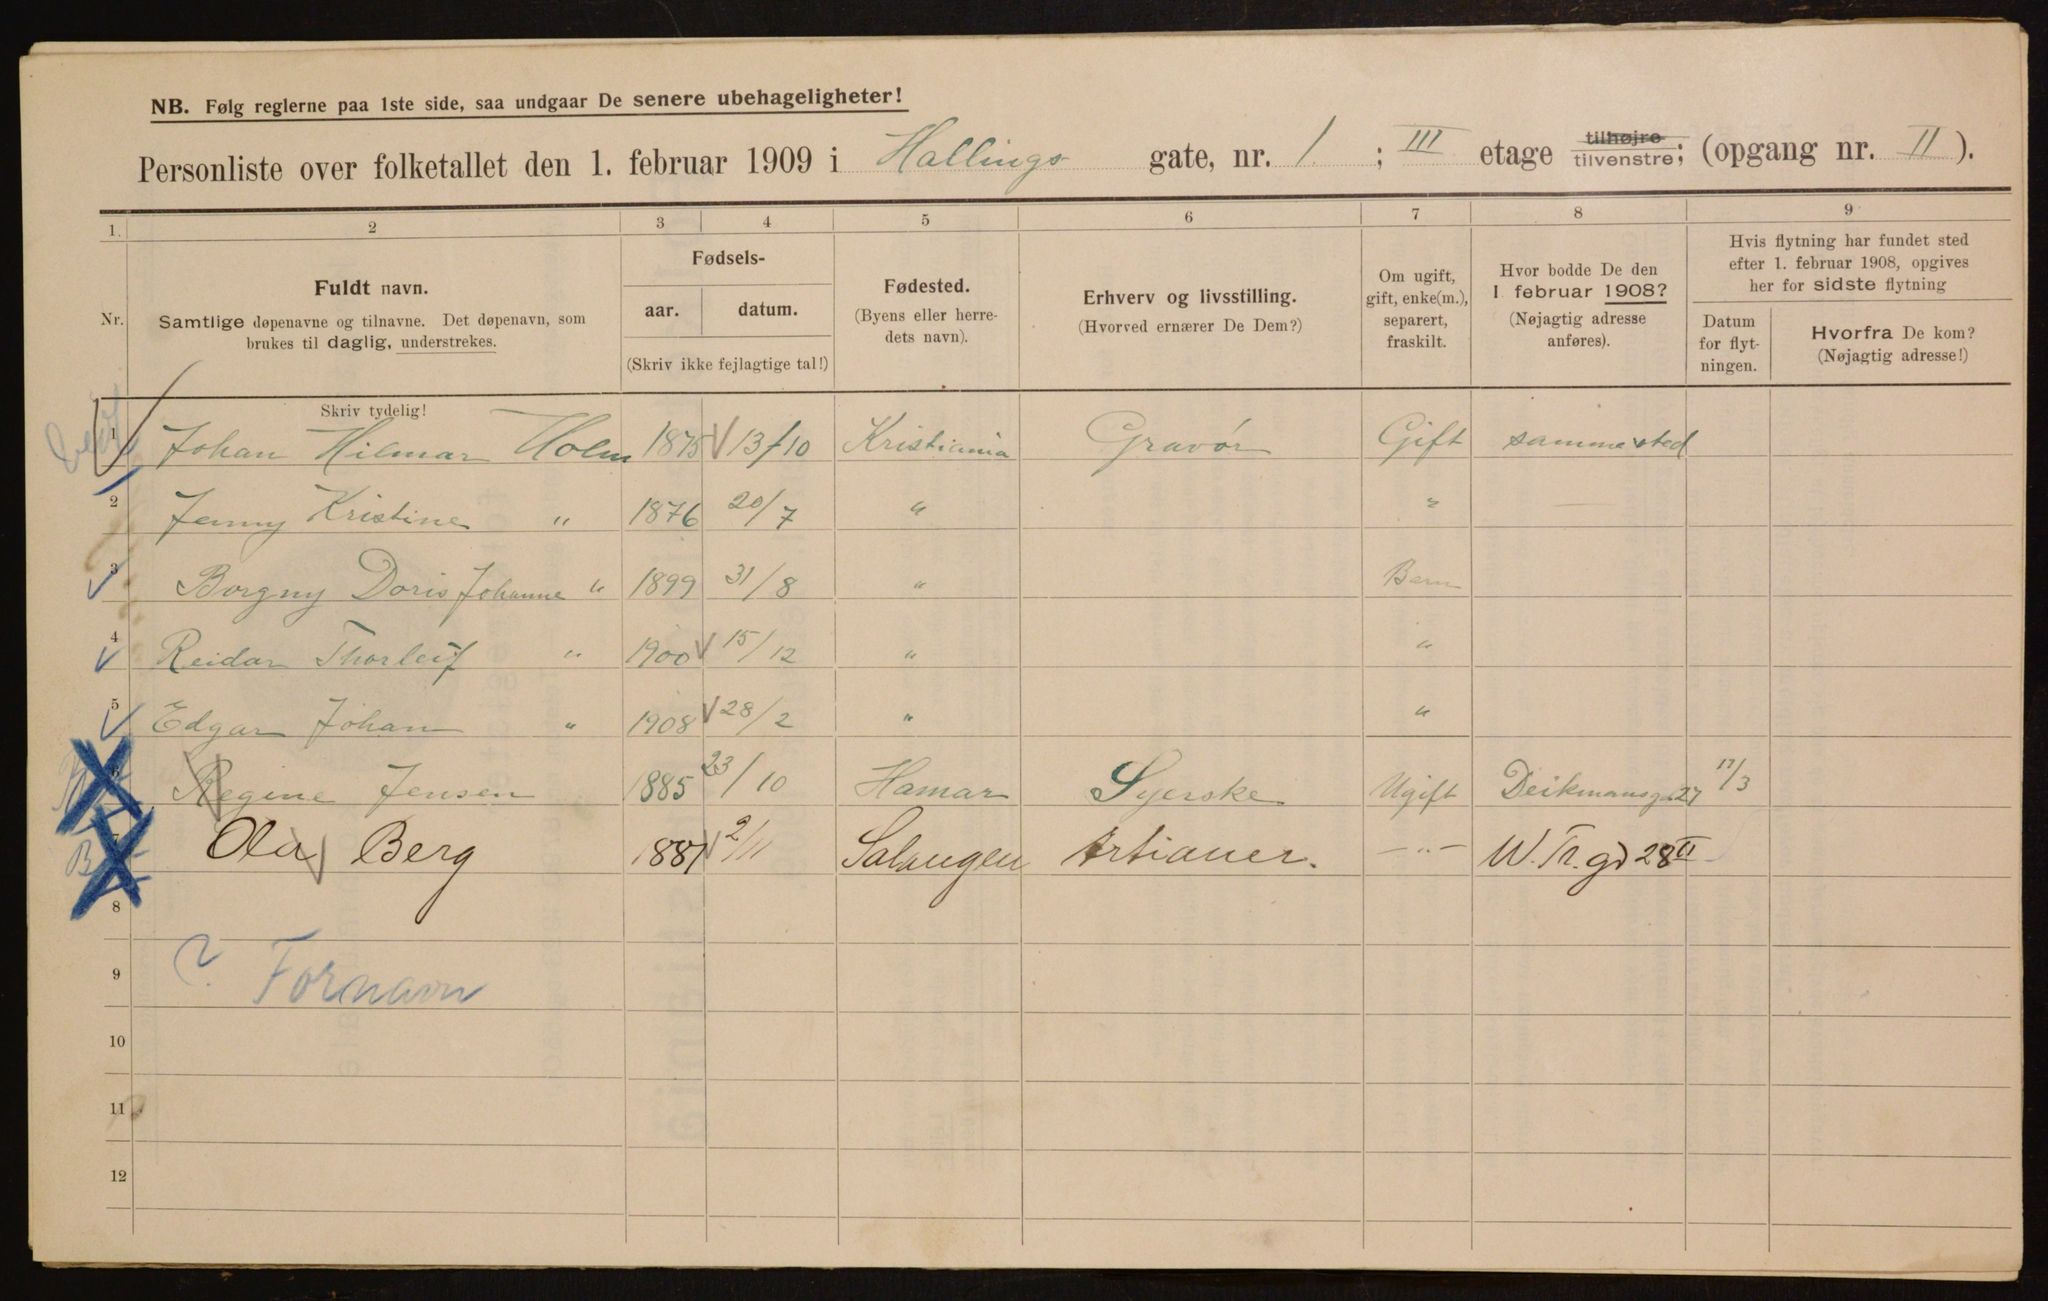 NB. Følg reglerne paa 1ste side, saa undgaar De senere ubehageligheter!
Personliste over folketallet den 1. februar 1909 i Hallings gate, nr. 1 ; III etage tilhøjre tilvenstre; (opgang nr. II).
1. 2 3 4 5 6 7 8 9
Nr.
Fuldt navn.
Samtlige døpenavne og tilnavne. Det døpenavn, som
brukes til daglig, understrekes.
Skriv tydelig!
Fødsels-
aar. datum.
(Skriv ikke fejlagtige tal!)
Fødested.
(Byens eller herre-
dets navn).
Erhverv og livsstilling.
(Hvorved ernærer De Dem?)
Om ugift,
gift, enke(m.),
separert,
fraskilt.
Hvor bodde De den
1 februar 1908?
(Nøjagtig adresse
anføres).
Hvis flytning har fundet sted
efter 1. februar 1908, opgives
her for sidste flytning
Datum
for flyt-
ningen.
Hvorfra De kom?
(Nøjagtig adresse!)
1 Johan Hilmar Holm 1875 13/10 Kristiania Gravør Gift samme sted
2 Jenny Kristine " 1876 20/7 " "
3 Borgny Doris Johanne " 1899 31/8 " Barn
4 Reidar Thorleif " 1900 15/12 " "
5 Edgar Johan " 1908 28/2 " "
6 Regine Jensen 1885 23/10 Hamar Syerske Ugift Deikmansg. 27 17/3
7 Ola Berg 1887 2/11 Salangen Artianer. -"- W. Tr. gd 28 II
8
9 ? Fornavn
10
11
12